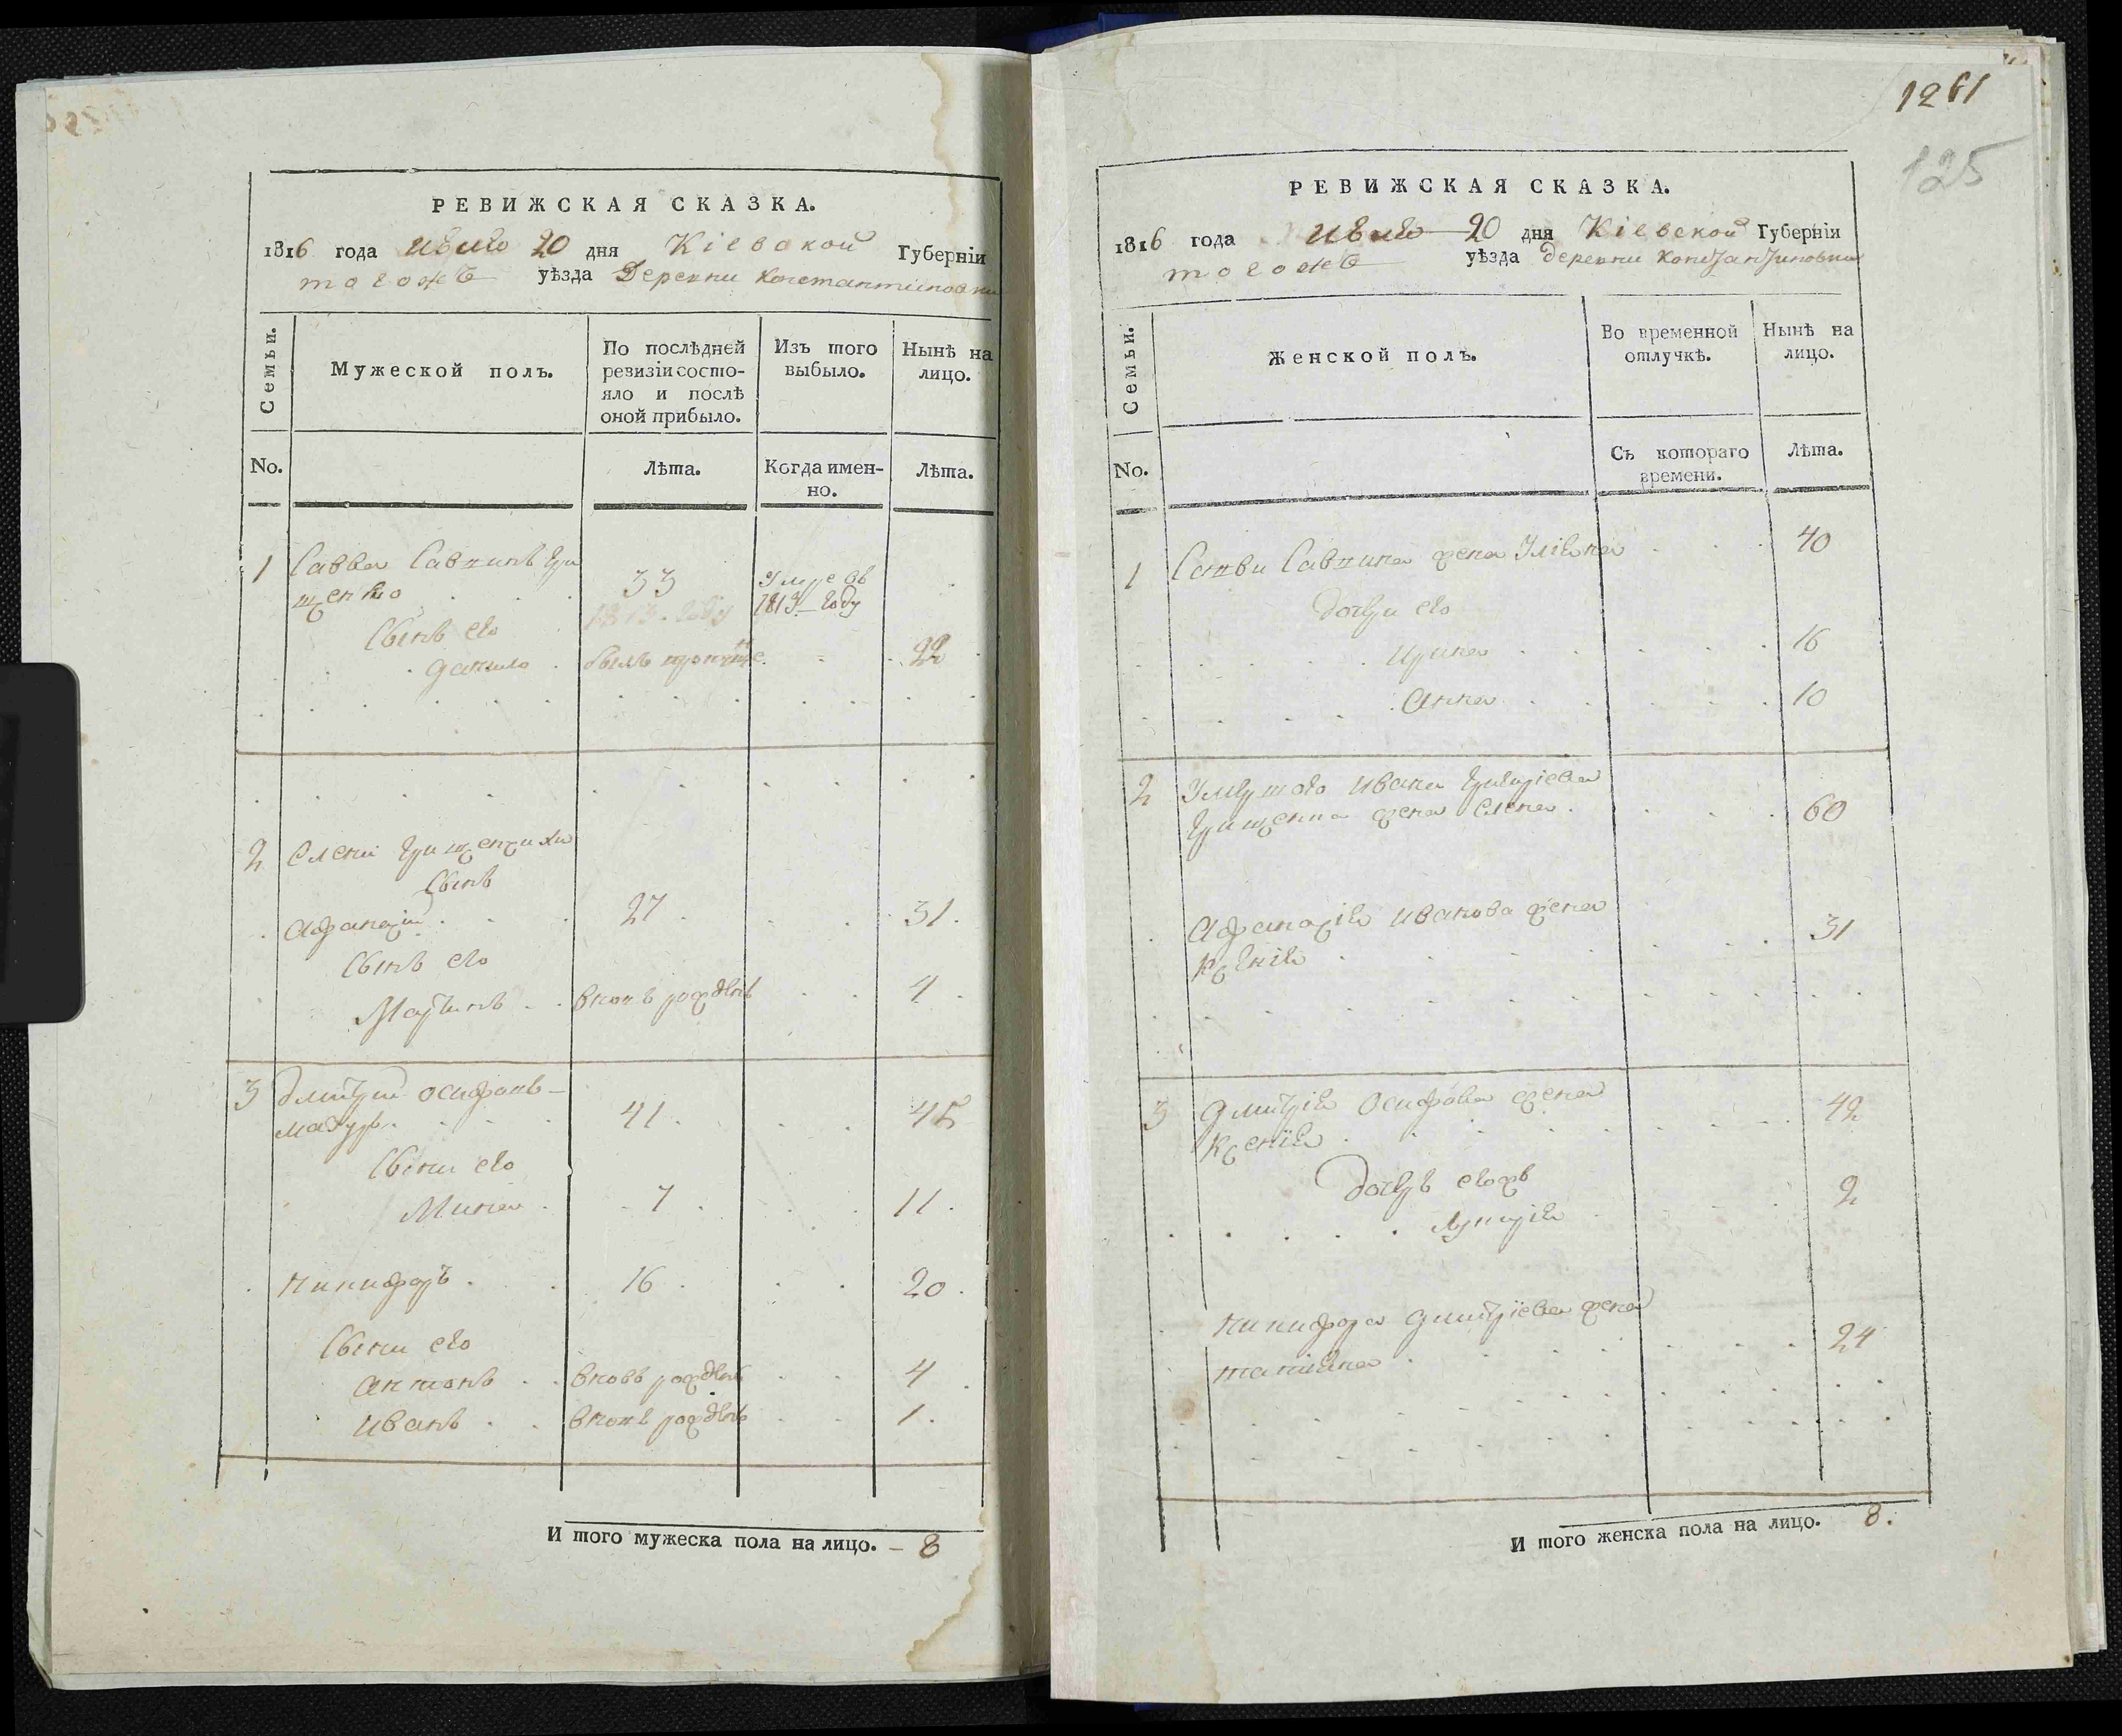 РЕВИЖСКАЯ СКАЗКА.
1816 года 20 дня Кіевской Губерніи
тогожъ уѣзда Деревни Константиновки
Семьи.
Мужеской полъ.
По послѣдней
ревизіи состо-
яло и послѣ
оной прибыло.
Изъ того
выбыло.
Нынѣ на
лицо.
No.
Лѣта.
Когда имен-
но.
Лѣта.
1 Савва Савинъ Гри
щенко 33 Умре въ
1813 году
Сынъ его
Данило былъ 22
2 Елены Грищенчихи
Сынъ
Афанасій 27 31
Сынъ его
Мартинъ вновъ рожденъ 4
3 Дмитрій Осиповъ
Мазуръ 41 45
Сыни его
Мина 7 11
Никифоръ 16 20
Сыни его
Антонъ вновь рожденъ 4
Иванъ вновъ рожденъ 1
И того мужеска пола на лицо. – 8
1261
125
РЕВИЖСКАЯ СКАЗКА.
1816 года 20 дня Кіевской Губерніи
тогожъ уѣзда деревни Константиновки
Семьи.
Женской полъ.
Во временной
отлучкѣ.
Нынѣ на
лицо.
No.
Съ котораго
времени.
Лѣта.
1 Савви Савина жена Уліяна 40
Дочери его
Ирина 16
Анна 10
2 Умершого Ивана Григоріева
Грищенка жена Елена 60
Афанасія Иванова жена
Ксенія 31
3 Дмитрія Осипова жена
Ксенія 42
Дочерь егожъ
2
Никифора Дмитріева жена
Татіяна 24
И того женска пола на лицо. 8.